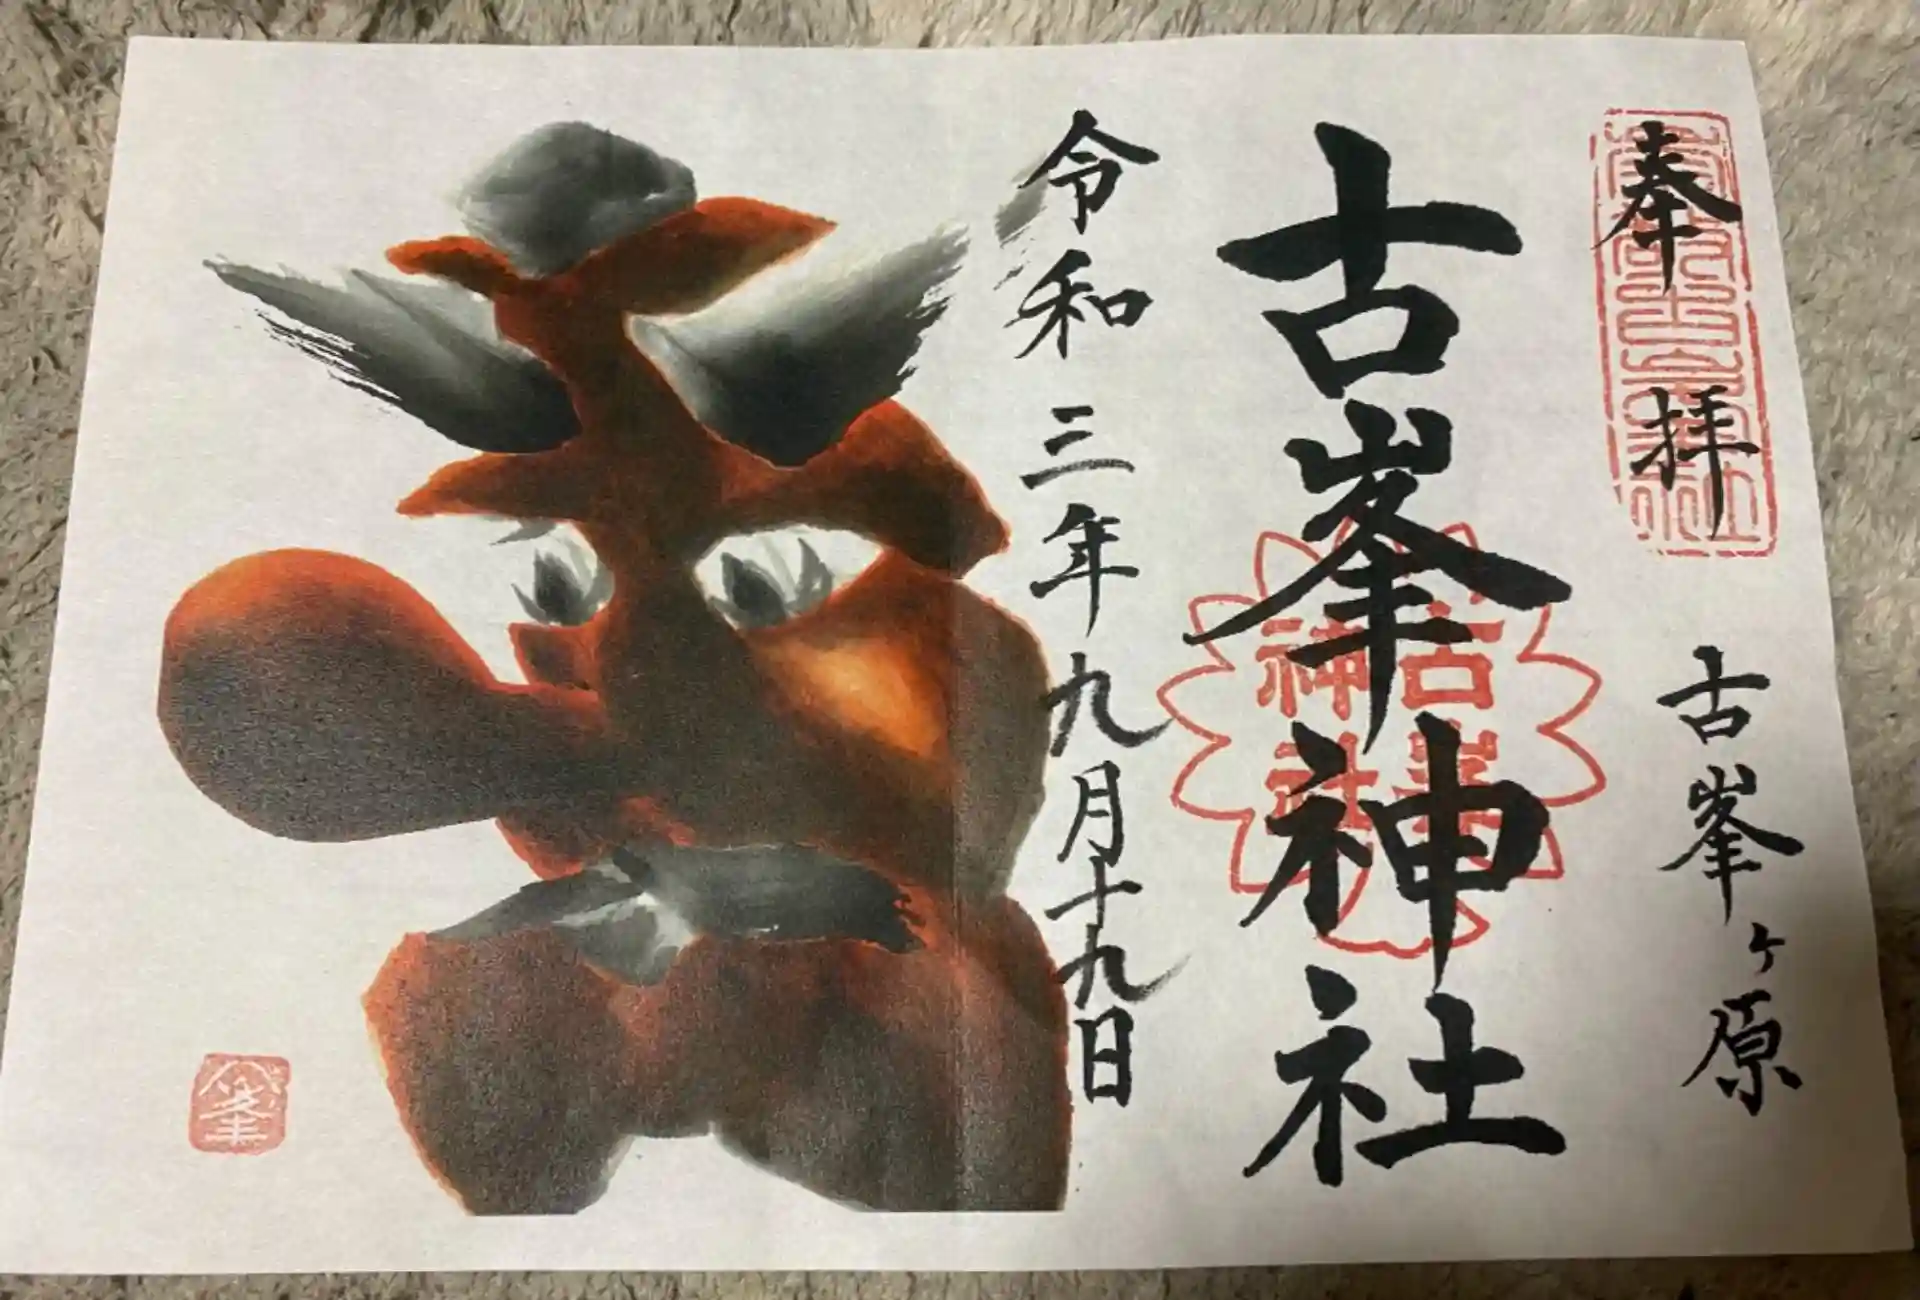 奉拝
古峯ヶ原
古峯神社
古峯神社
令和三年九月十九日